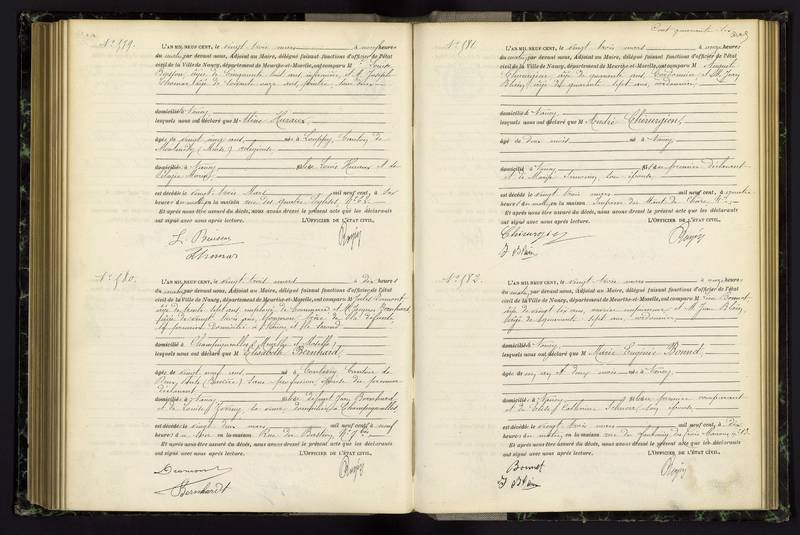 N° 579.
L'AN MIL NEUF CENT, le vingt trois mars à neuf heures
du matin, par devant nous, Adjoint au Maire, délégué faisant fonctions d'officier de l'état
civil de la Ville de Nancy, département de Meurthe-et-Moselle, ont comparu M Louise
âgée de cinquante huit ans, infirmière, et M. Joseph
Thomas, âgé de soixante onze ans,
domiciliés à Nancy
lesquels nous ont déclaré que M Albine Huraux
âgée de vingt neuf ans née à Louppy, Canton de
Montmédy (Meuse) religieuse
domiciliée à Nancy, fille de Louis Huraux et de
est décédée le vingt trois Mars mil neuf cent, à six
heures du matin, en la maison rue des quatre Églises, N°
Et après nous être assuré du décès, nous avons dressé le présent acte que les déclarants
ont signé avec nous après lecture. L'OFFICIER DE L'ÉTAT CIVIL,
Thomas
N° 580.
L'AN MIL NEUF CENT, le vingt trois mars à Dix heures
du matin, par devant nous, Adjoint au Maire, délégué faisant fonctions d'officier de l'état
civil de la Ville de Nancy, département de Meurthe-et-Moselle, ont comparu M Jules
âgé de trente sept ans, employé de commerce et M. Jacques Bernhard,
âgé de vingt trois ans, frère de la défunte,
le premier domicilié à Nancy, et le second
à Champigneulles (Meurthe et Moselle),
lesquels nous ont déclaré que M Elisabeth Bernhard,
âgée de vingt neuf ans née à
(Bavière) sans profession, épouse du premier
déclarant
domiciliée à Nancy, fille de défunt Jean Bernhard
et de sa veuve, domiciliée à Champigneulles,
est décédée le vingt deux mars mil neuf cent, à neuf
heures du soir en la maison Rue du Bastion, N°
Et après nous être assuré du décès, nous avons dressé le présent acte que les déclarants
ont signé avec nous après lecture. L'OFFICIER DE L'ÉTAT CIVIL,
Bernhardt
Cent quarante
N° 581.
L'AN MIL NEUF CENT, le vingt trois mars à onze heures
du matin, par devant nous, Adjoint au Maire, délégué faisant fonctions d'officier de l'état
civil de la Ville de Nancy, département de Meurthe-et-Moselle, ont comparu M Auguste
Chirurgien, âgé de quarante ans, Cordonnier et M. Jean
Blain, âgé de quarante sept ans, cordonnier,
domiciliés à Nancy
lesquels nous ont déclaré que M André Chirurgien,
âgé de deux mois né à Nancy,
domicilié à Nancy, fils du premier déclarant
et de Marie son épouse,
est décédé le vingt trois mars mil neuf cent, à quatre
heures du matin, en la maison Impasse du
Et après nous être assuré du décès, nous avons dressé le présent acte que les déclarants
ont signé avec nous après lecture. L'OFFICIER DE L'ÉTAT CIVIL,
Chirurgien
J Blain
N° 582.
L'AN MIL NEUF CENT, le vingt trois mars à onze heures
du matin, par devant nous, Adjoint au Maire, délégué faisant fonctions d'officier de l'état
civil de la Ville de Nancy, département de Meurthe-et-Moselle, ont comparu M Bonnet,
âgé de vingt six ans, ouvrier et M. Jean Blain,
âgé de quarante sept ans, cordonnier,
domiciliés à Nancy,
lesquels nous ont déclaré que M Marie Eugénie Bonnet,
âgée de un an et deux mois née à Nancy,
domiciliée à Nancy, fille du premier comparant
et de Catherine son épouse
est décédée le vingt trois mars mil neuf cent, à Dix
heures du matin, en la maison rue du faubourg des trois Maisons, N°
Et après nous être assuré du décès, nous avons dressé le présent acte que les déclarants
ont signé avec nous après lecture. L'OFFICIER DE L'ÉTAT CIVIL,
Bonnet
J Blain